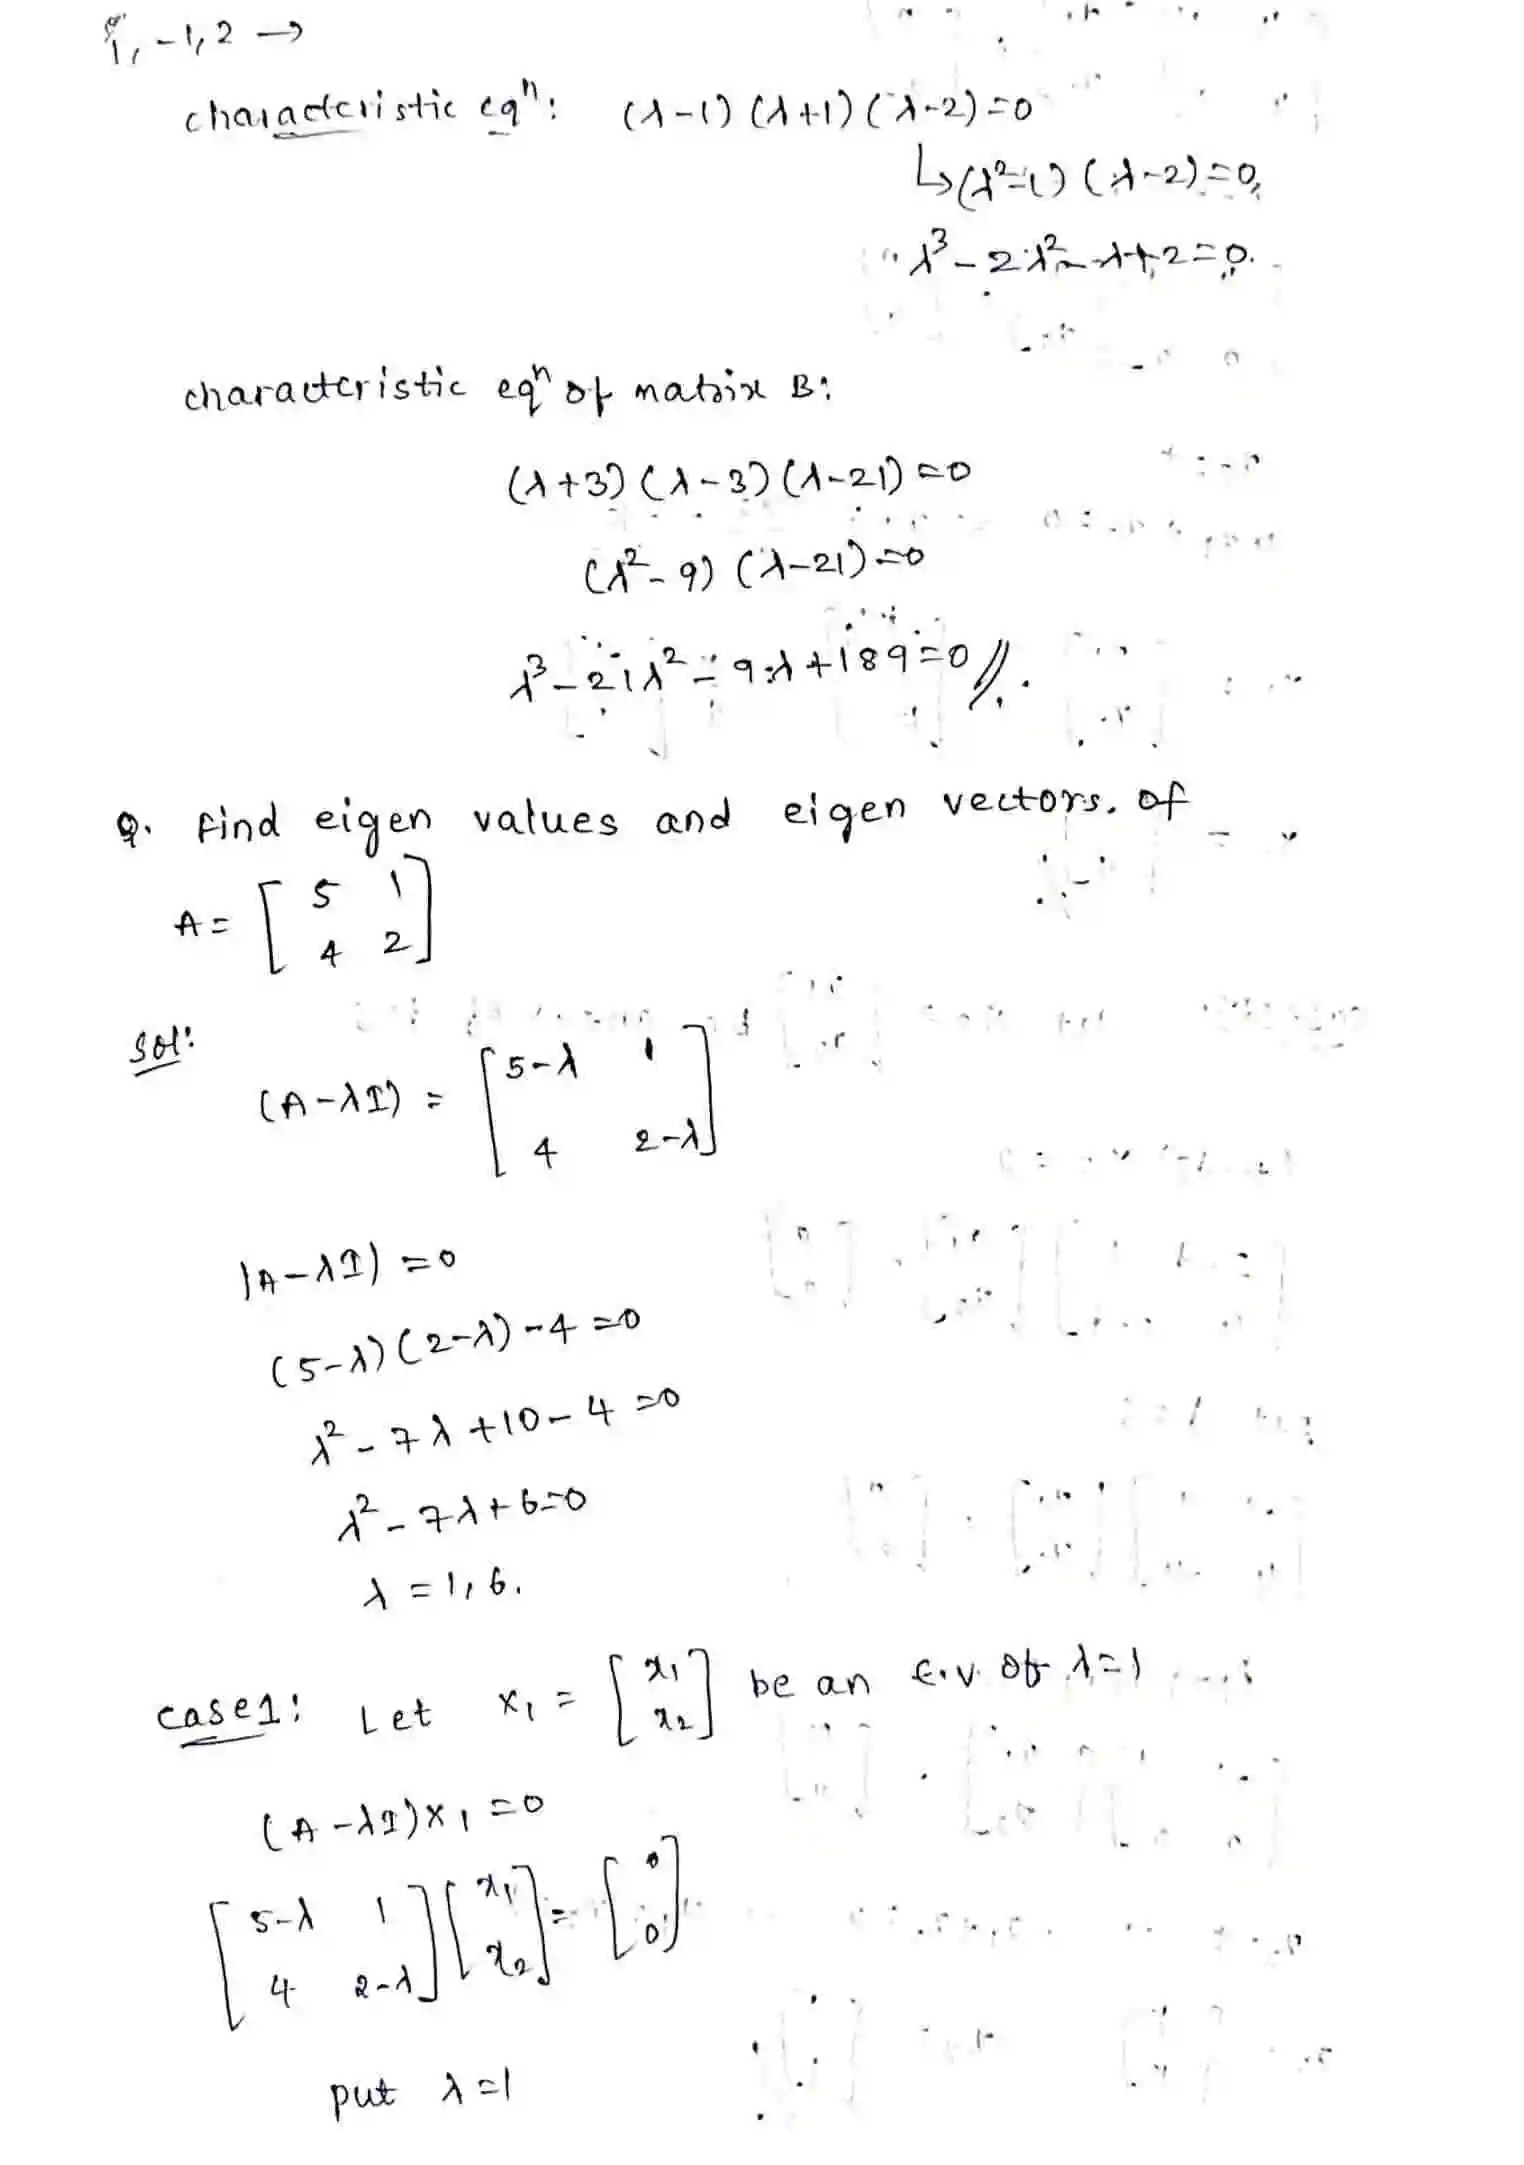 1, -1, 2 →
characteristic eqⁿ: (λ-1) (λ+1) (λ-2)=0
↳(λ²-1) (λ-2)=0,
λ³ - 2λ² - λ + 2 = 0.
characteristic eqⁿ of matrix B:
(λ+3) (λ-3) (λ-21) = 0
(λ² - 9) (λ-21) = 0
λ³ - 21λ² - 9λ + 189 = 0 //.
Q. find eigen values and eigen vectors. of
A = [ 5 1
4 2 ]
Sol:
(A-λI) = [ 5-λ 1
4 2-λ ]
|A-λI| = 0
(5-λ) (2-λ) - 4 = 0
λ² - 7λ + 10 - 4 = 0
λ² - 7λ + 6 = 0
λ = 1, 6.
case 1: Let X₁ = [ x₁ x₂ ] be an E.V. of λ=1
(A-λI)X₁ = 0
[ 5-λ 1 ] [ x₁ ] = [ 0 ]
[ 4 2-λ ] [ x₂ ] [ 0 ]
put λ=1